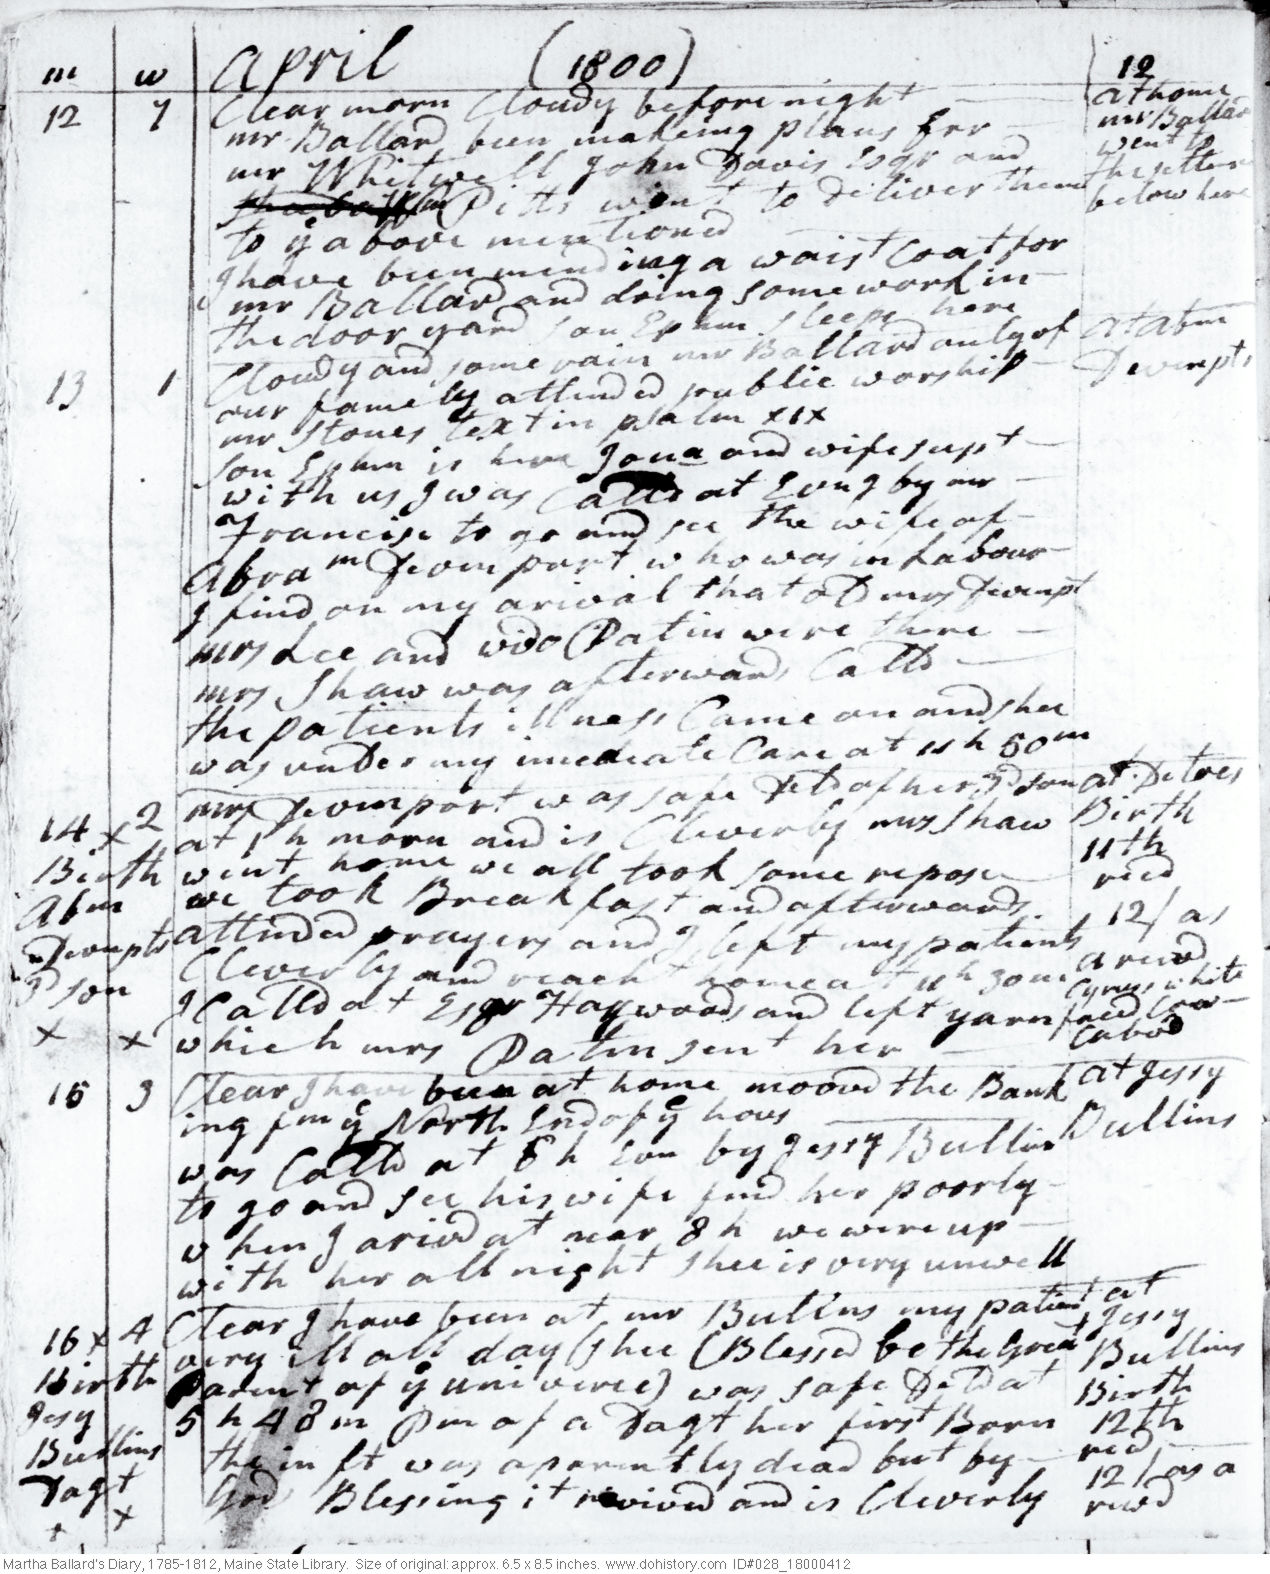 m w April (1800) 12
12 7 Clear morn Cloudy before night at home
mr Ballard been making plans for mr Ballard
mr Whitwell John Davis Esqr and went to
Pitts went to deliver them the settlers
to ye above mentioned below here
I have been mending a waist Coat for
mr Ballard and doing some work in
the door yard son Ephm sleeps here
13 1 Cloudy and some rain mr Ballard only of at Abm
our famely attended public worship Devenpts
mr Stones text in psalm xix
son Ephm is here Jona and wife supt
with us I was Calld at Evng by mr
Francise to go and see the wife of
Abram Devenport who was in Labour
I find on my arival that old mrs Devenpt
mrs Lee and wido Patin were there
mrs Shaw was afterwards Calld
the patients illness Came on and shee
was under my imediate Care at 11 h 50 m
mrs Devenport was safe Deld of her 3d son at Ditoes
14 x 2 at 1 h morn and is Cleverly mrs Shaw Birth
Birth went home we all took some repose 11th
Abm we took Breakfast and afterwards recd
Devenpts attended prayers and I left my patient 12/ as
3d son Cleverly and reacht home at 11 h 30 m a reward
x x I Calld at Esqr Haywoods and left yarn Cyrus white
which mrs Patin sent her
15 3 Clear I have been at home moovd the Bank at Jessy
ing fm ye North End of ye hous Bullins
was Calld at 6 h Evn by Jessy Bullin
to go and see his wife find her poorly
when I arivd at near 8 h we were up
with her all night shee is very unwell
16 x 4 Clear I have been at mr Bullins my patient at
Birth very ill all day (shee (Blessed be the Great Jessy
Jesy parent of ye univerce) was safe Deld at Bullins
Bullins 5 h 48 m Pm of a Dagt her first Born Birth
Dagt the inft was aparently dead but by 12th
x x God Blessing it revived and is Cleverly recd
12/ as a
rewd
Martha Ballard's Diary, 1785-1812, Maine State Library. Size of original: approx. 6.5 x 8.5 inches. www.dohistory.com ID#028_18000412